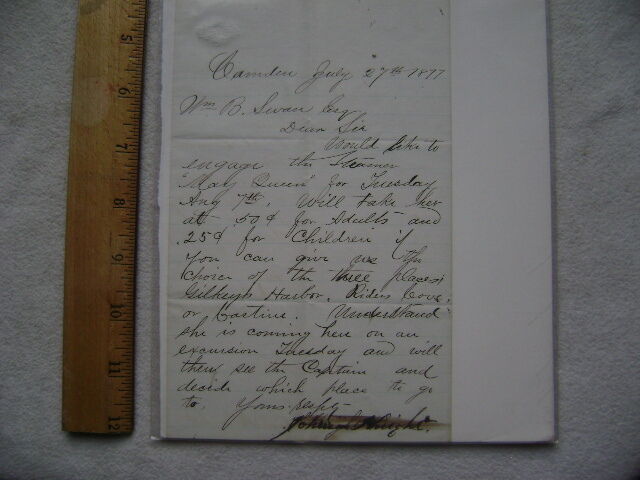 Camden July 27th 1877
Wm B. Swan Esq
Dear Sir
Would like to
engage the Steamer
"May Queen" for Tuesday
Aug 7th. Will take her
at .50¢ for Adults and
.25¢ for Children if
you can give us the
choice of the three places
Gilkeys Harbor, Riders Cove,
or Castine. Understand
she is coming here on an
excursion Tuesday and will
then see the Captain and
decide which place to go
to. Yours Respty
Knight.
5
6
7
8
9
10
11
12